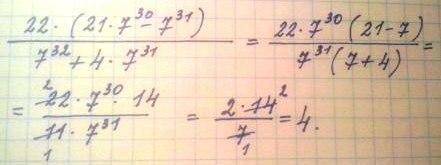 22·(21·7³⁰-7³¹) / 7³²+4·7³¹ = 22·7³⁰(21-7) / 7³¹(7+4) =
= ²22·7³⁰·14 / ₁11·7³¹ = 2·14² / 7₁ = 4.